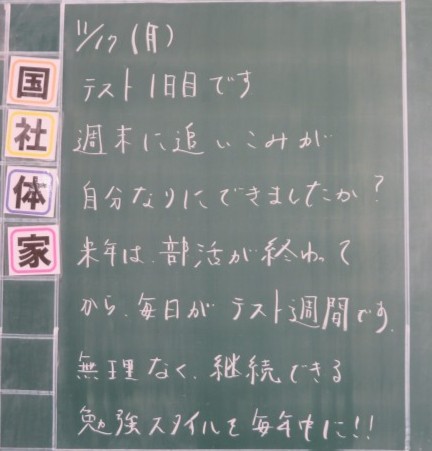 11/17(月)
テスト1日目です
週末に追いこみが
自分なりにできましたか?
来年は、部活が終わって
から、毎日がテスト週間です.
無理なく、継続できる
勉強スタイルを毎年中に!!
国
社
体
家